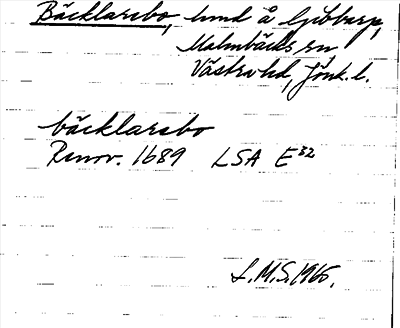 Bäcklarebo, lund å Gibbarp,
Malmbäcks sn
Västra hd, Jönk. l.
bäcklarebo
Renov. 1689 LSA E32
L.M.S. 1965.